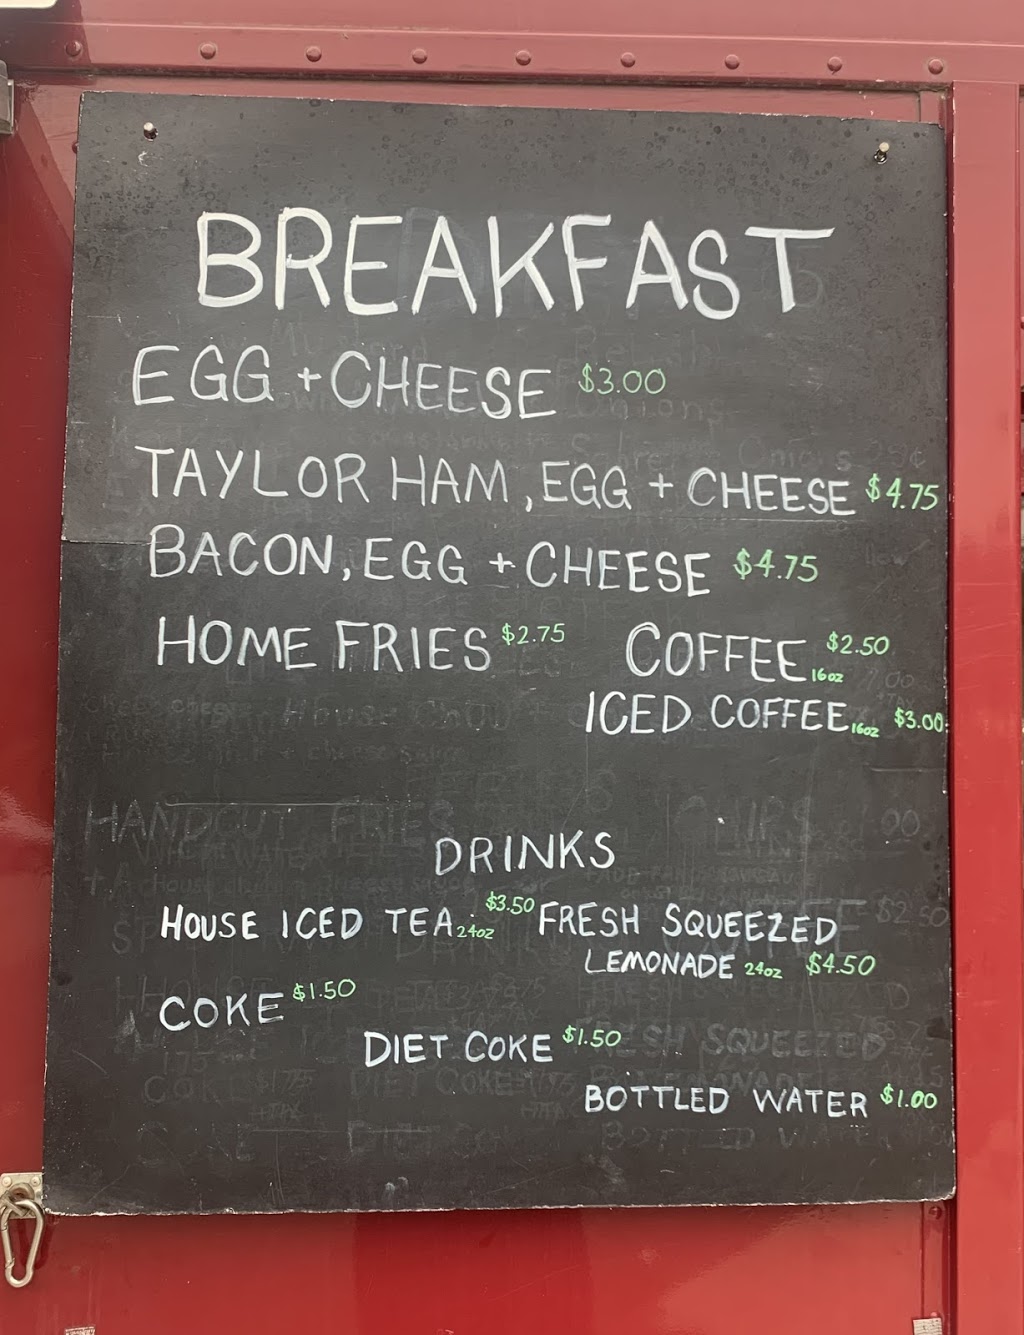 BREAKFAST
EGG + CHEESE $3.00
TAYLOR HAM, EGG + CHEESE $4.75
BACON, EGG + CHEESE $4.75
HOME FRIES $2.75 COFFEE 16oz $2.50
ICED COFFEE 16oz $3.00
DRINKS
HOUSE ICED TEA 24oz $3.50 FRESH SQUEEZED
LEMONADE 24oz $4.50
COKE $1.50
DIET COKE $1.50
BOTTLED WATER $1.00